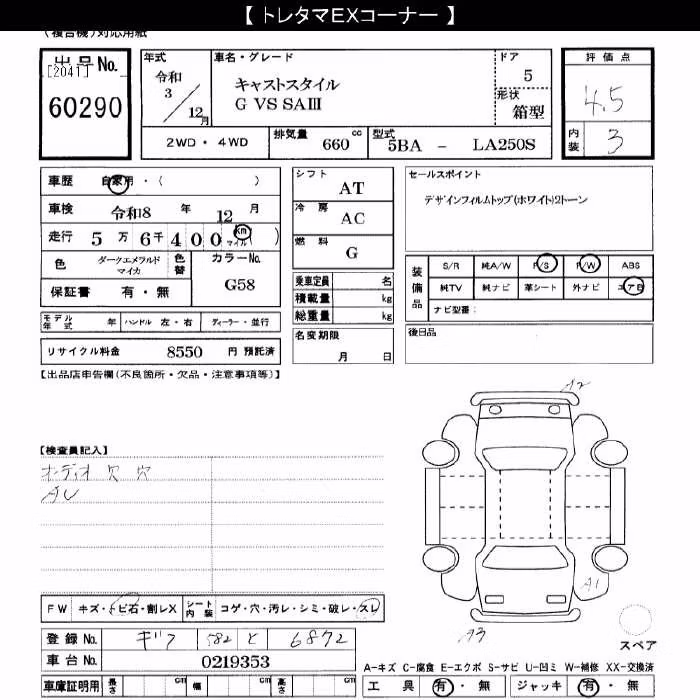 【 トレタマEXコーナー 】
(複合機)対応用紙
出品No.
[2041]
60290
年式
令和
3 / 12月
車名・グレード
キャストスタイル
G VS SAⅢ
ドア
5
形状
箱型
評価点
4.5
内装
3
2WD・4WD
排気量 660 cc
型式 5BA - LA250S
車歴 自家用・( )
車検 令和8 年 12 月
走行 5万6千400 km マイル ( )
色 ダークエメラルドマイカ
色替
カラーNo.
G58
保証書 有・無
モデル年式 年 ハンドル 左・右 ディーラー・並行
リサイクル料金 8550 円 預託済
シフト
AT
冷房
AC
燃料
G
乗車定員 名
積載量 kg
総重量 kg
名変期限
月 日
セールスポイント
デザインフィルムトップ(ホワイト)2トーン
装備品
S/R 純A/W P/S P/W ABS
純TV 純ナビ 革シート 外ナビ エアB
ナビ型番:
後日品
【出品店申告欄(不良箇所・欠品・注意事項等)】
【検査員記入】
オーディオ欠 穴
AU
A2
A1
A3
スペア
FW キズ・トビ石・割レX
シート内装 コゲ・穴・汚レ・シミ・破レ・スレ
登録No. ギフ 582 と 6872
車台No. 0219353
車庫証明用 長さ cm 幅 cm 高さ cm
A-キズ C-腐食 E-エクボ S-サビ U-凹ミ W-補修 XX-交換済
工具 有・無 ジャッキ 有・無